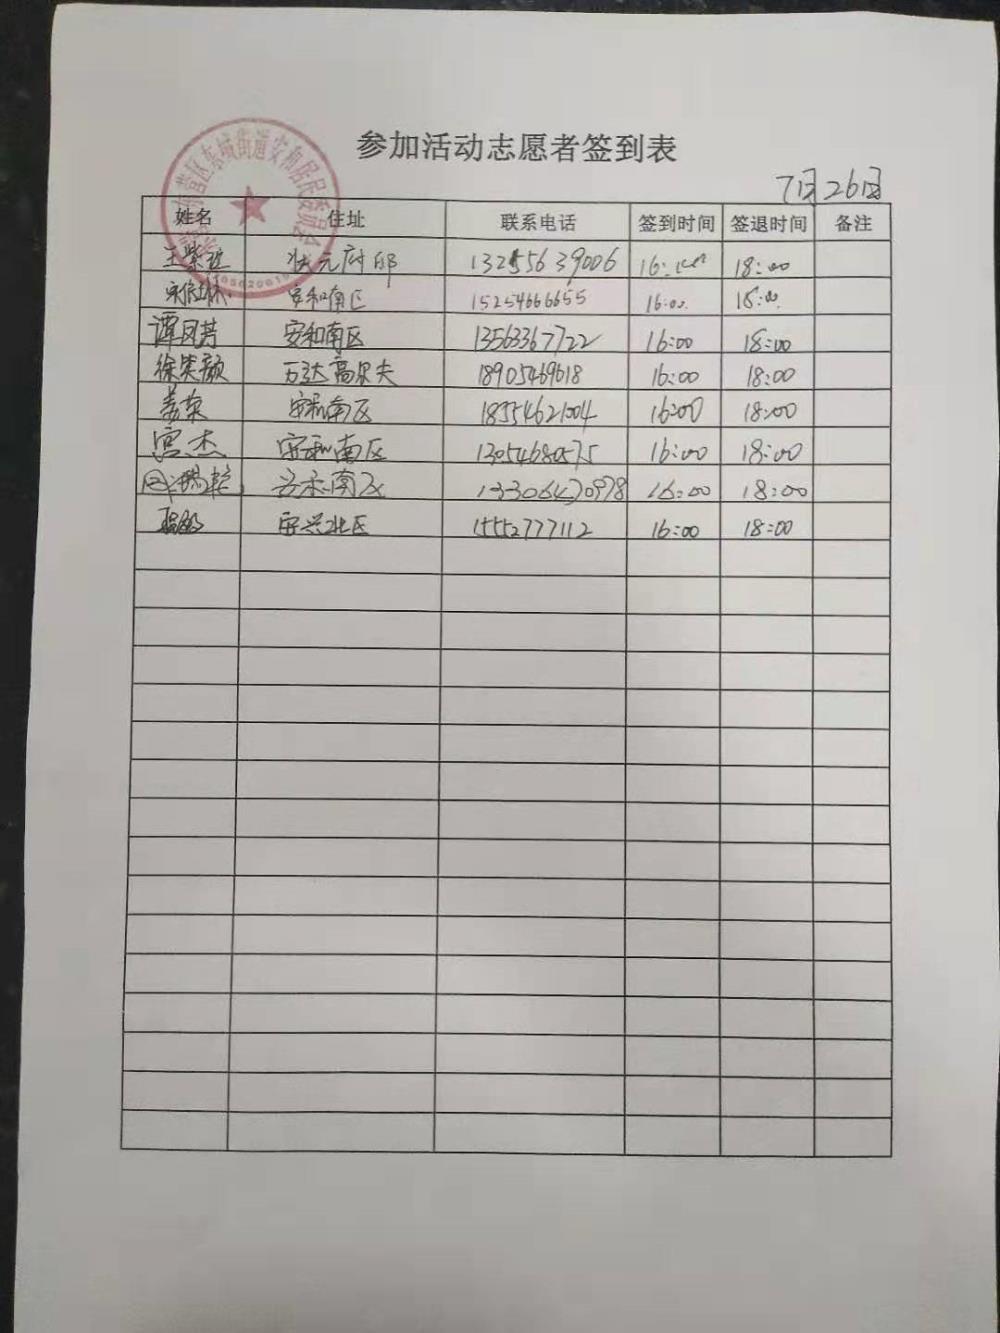 参加活动志愿者签到表
7月26日
东营区东城街道安和居民委员会
姓名 住址 联系电话 签到时间 签退时间 备注
状元府邸 13255639006 18:00
安和南区 15254666655 16:00 18:00
谭冈芳 安和南区 13563367722 16:00 18:00
徐英颜 万达高尔夫 18905469618 16:00 18:00
安和南区 18554621004 16:00 18:00
宫杰 安和南区 13054680575 16:00 18:00
安和南区 13306470978 16:00 18:00
安兴北区 15552777112 16:00 18:00